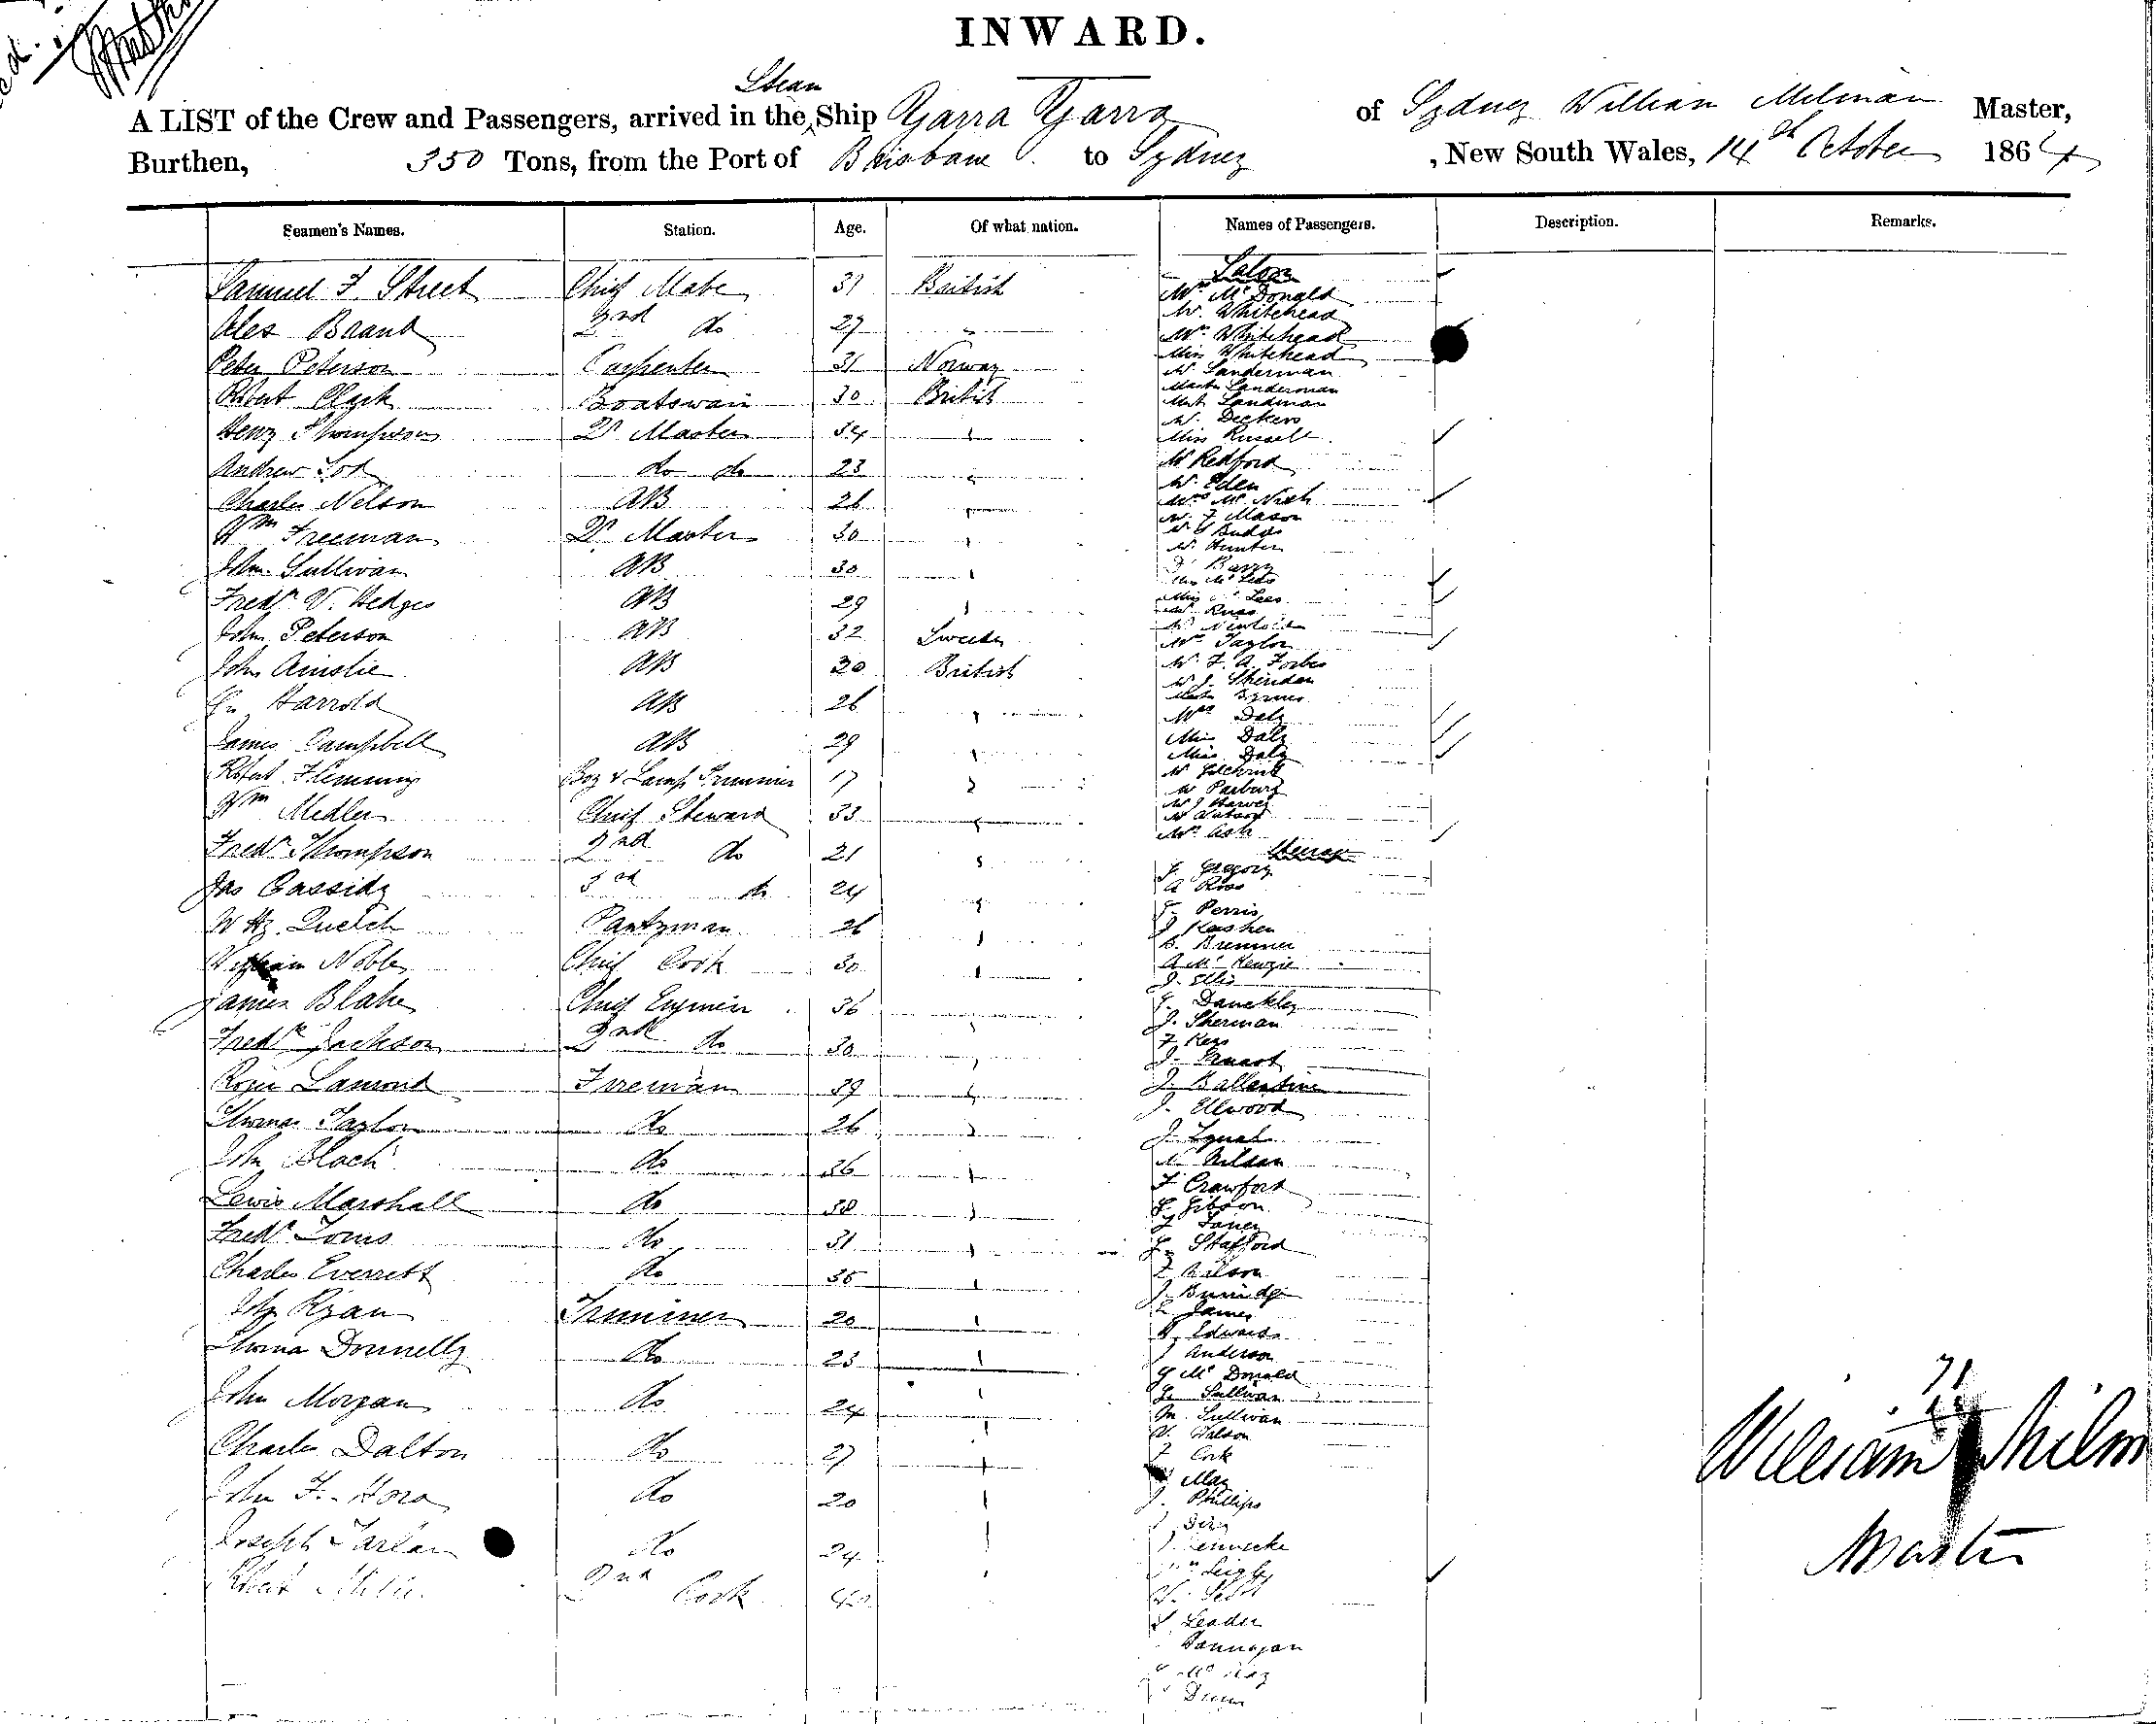 INWARD.
Steam
A LIST of the Crew and Passengers, arrived in the Ship Yarra Yarra of Sydney William Milman Master,
Burthen, 350 Tons, from the Port of Brisbane to Sydney, New South Wales, 14th October 1864
Seamen's Names. Station. Age. Of what nation. Names of Passengers. Description. Remarks.
Samuel F. Street Chief Mate 31 British
Alex Brand 2nd do 27 "
Peter Peterson Carpenter 31 Norway
Robert Clark Boatswain 30 British
Henry Thompson Qr Master 34 "
Andrew do do 23 "
Charles Nelson AB 26 "
Wm Freeman Qr Master 30 "
John Sullivan AB 30 "
Fredk V. Hedges AB 29 "
John Peterson AB 32 Sweden
John Ainslie AB 30 British
Harrold AB 26 "
James Campbell AB 29 "
Robert Flemming Boy & Lamp Trimmer 17 "
Wm Medler Chief Steward 33 "
Fredk Thompson 2nd do 21 "
Jas Cassidy 3rd do 24 "
W Hy. Quelch Pantryman 26 "
William Noble Chief Cook 30 "
James Blake Chief Engineer 36 "
Fredk Jackson 2nd do 30 "
Roger Lamond Fireman 39 "
Thomas Taylor do 26 "
John Black do 36 "
Lewis Marshall do 38 "
Fredk do 31 "
Charles Everrett do 35 "
Ryan Trimmer 20 "
Thomas Donnelly do 23 "
John Morgan do 24 "
Charles Dalton do 27 "
John F. Hora do 20 "
Joseph do 24 "
Robert 2nd Cook 40
Saloon
Mrs McDonald
Mr. Whitehead
Mrs Whitehead
Miss Whitehead
Mr Sanderman
Master Sanderman
Mr. Dickens
Miss Russell
Mr Redford
Mr. Eden
Mrs Mc Nish
Mr. F Mason
Mr G Budge
Mr. Hunter
Barry
Mrs Mc Lees
Miss Mc Lees
Mrs Taylor
Mr. F. A. Forbes
Mr J. Sheridan
Mrs Daly
Miss Daly
Miss Daly
Mr Gilchrist
Mr Parbury
Mr J Harvey
Mr Watson
Mrs Ash
Steerage
J. Gregory
A Ross
J. Perris
B. Bremner
A McKenzie
J. Ellis
J. Danckley
J. Sherman
F Keys
J. Ballantine
J. Ellwood
N. Wilson
F Crawford
G. Gibson
G. Stafford
Wilson
J. Burridge
James
Edwards
J Anderson
G McDonald
G. Sullivan
M. Sullivan
W. Watson
F Cork
May
J. Phillips
Leigh
Scott
Leader
Hannagan
71
William Milm
Master